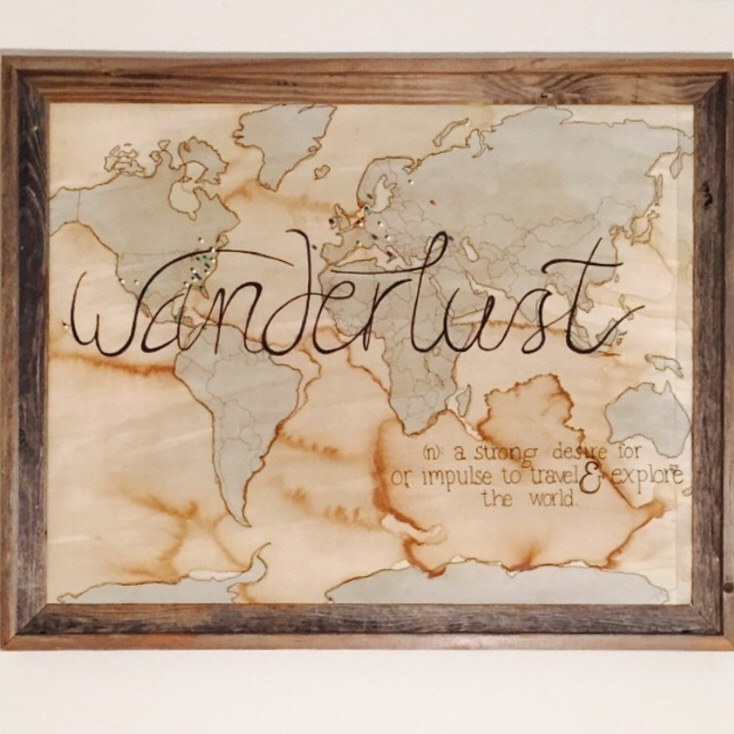 wanderlust
(n): a strong desire for
or impulse to travel & explore
the world.